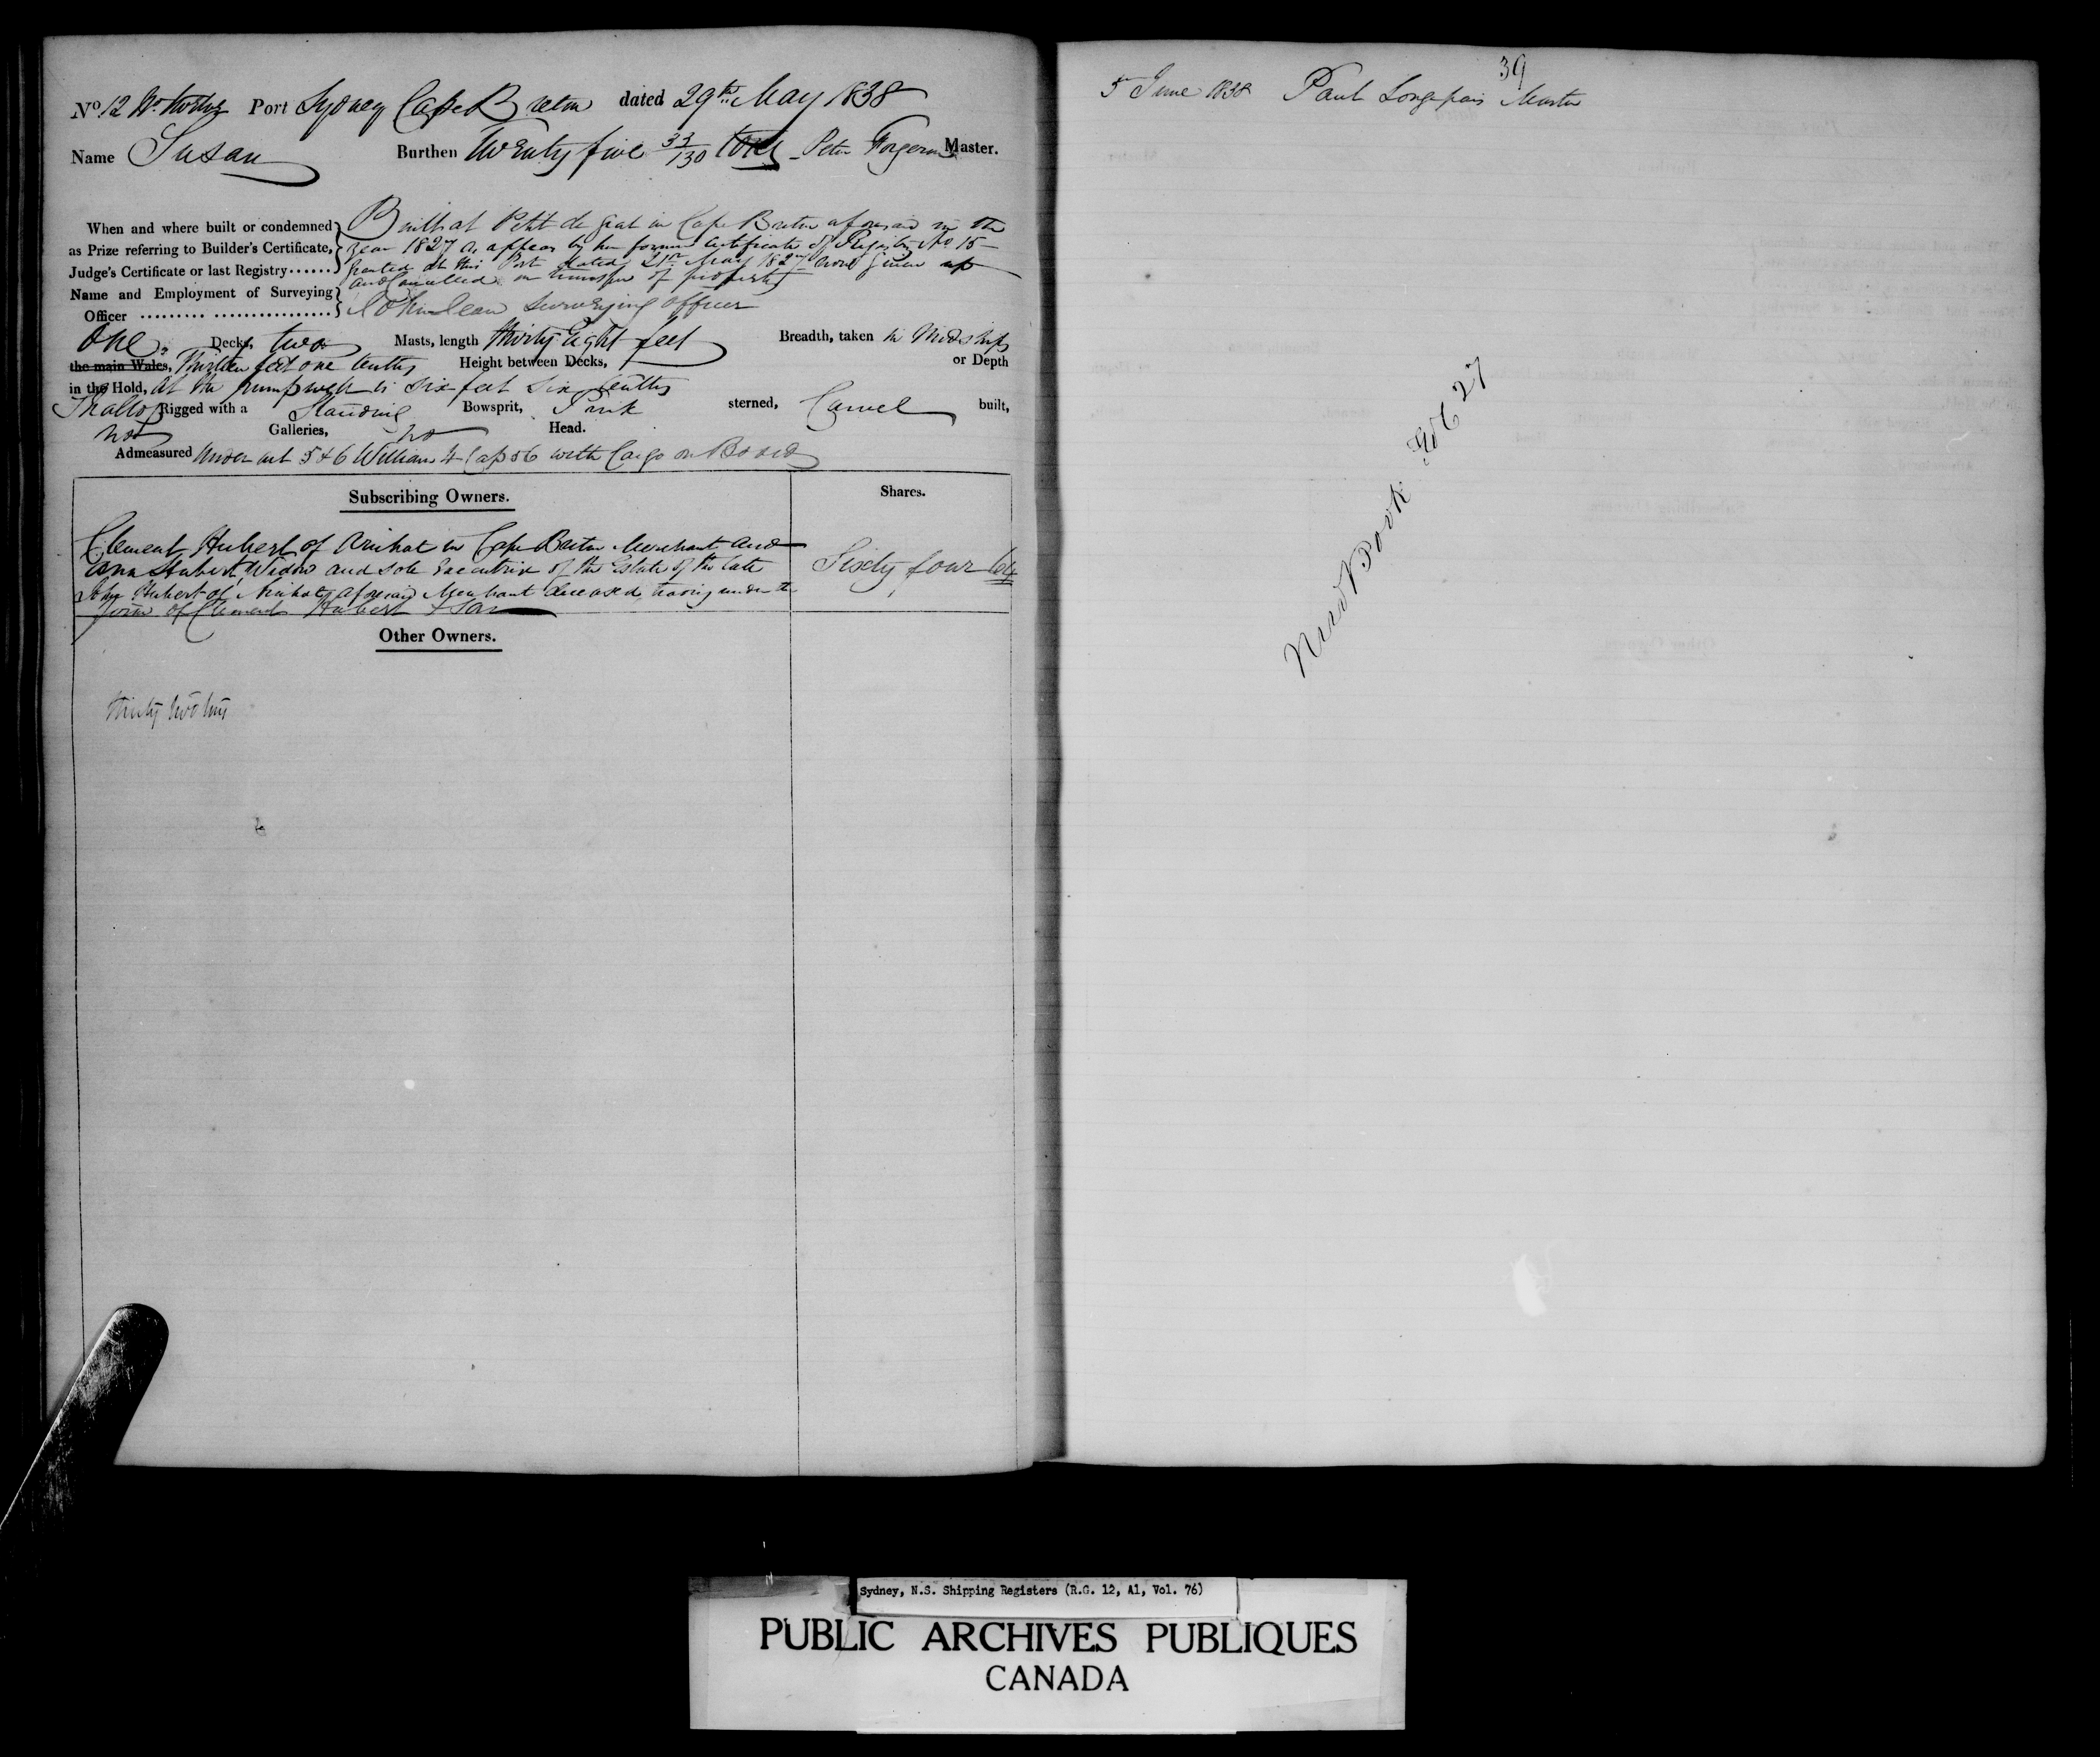 No. 12 Port Sydney Cape Breton dated 29th May 1838
Name Susan Burthen Twenty five 33/130 tons Peter Forgeron Master.
When and where built or condemned Built at Petit de Grat in Cape Breton aforesaid in the
as Prize referring to Builder's Certificate, year 1827 as appears by her former Certificate of Registry No 15
Judge's Certificate or last Registry...... granted at this Port dated 21st May 1827 now given up
and Cancelled on transfer of property
Name and Employment of Surveying
Officer John Jean Surveying officer
One Decks, two Masts, length thirty Eight feet Breadth, taken in Midships
the main Wales, Thirteen feet one tenths Height between Decks, or Depth
in the Hold, at the pumpwell is six feet six tenths
Shallop Rigged with a Standing Bowsprit, Pink sterned, Carvel built,
no Galleries, no Head.
Admeasured Under act 5 & 6 William 4 Cap 56 with Cargo on Board
Subscribing Owners. Shares.
Clement Hubert of Arichat in Cape Breton Merchant and
Ann Hubert, Widow and Sole Executrix of the Estate of the late
Hubert of Arichat aforesaid Merchant deceased, trading under the
firm of Clement Hubert & Son
Sixty four 64
Other Owners.
39
5th June 1838 Paul Longpais Master
New Book No 27
Sydney, N.S. Shipping Registers (R.G. 12, A1, Vol. 76)
PUBLIC ARCHIVES PUBLIQUES
CANADA